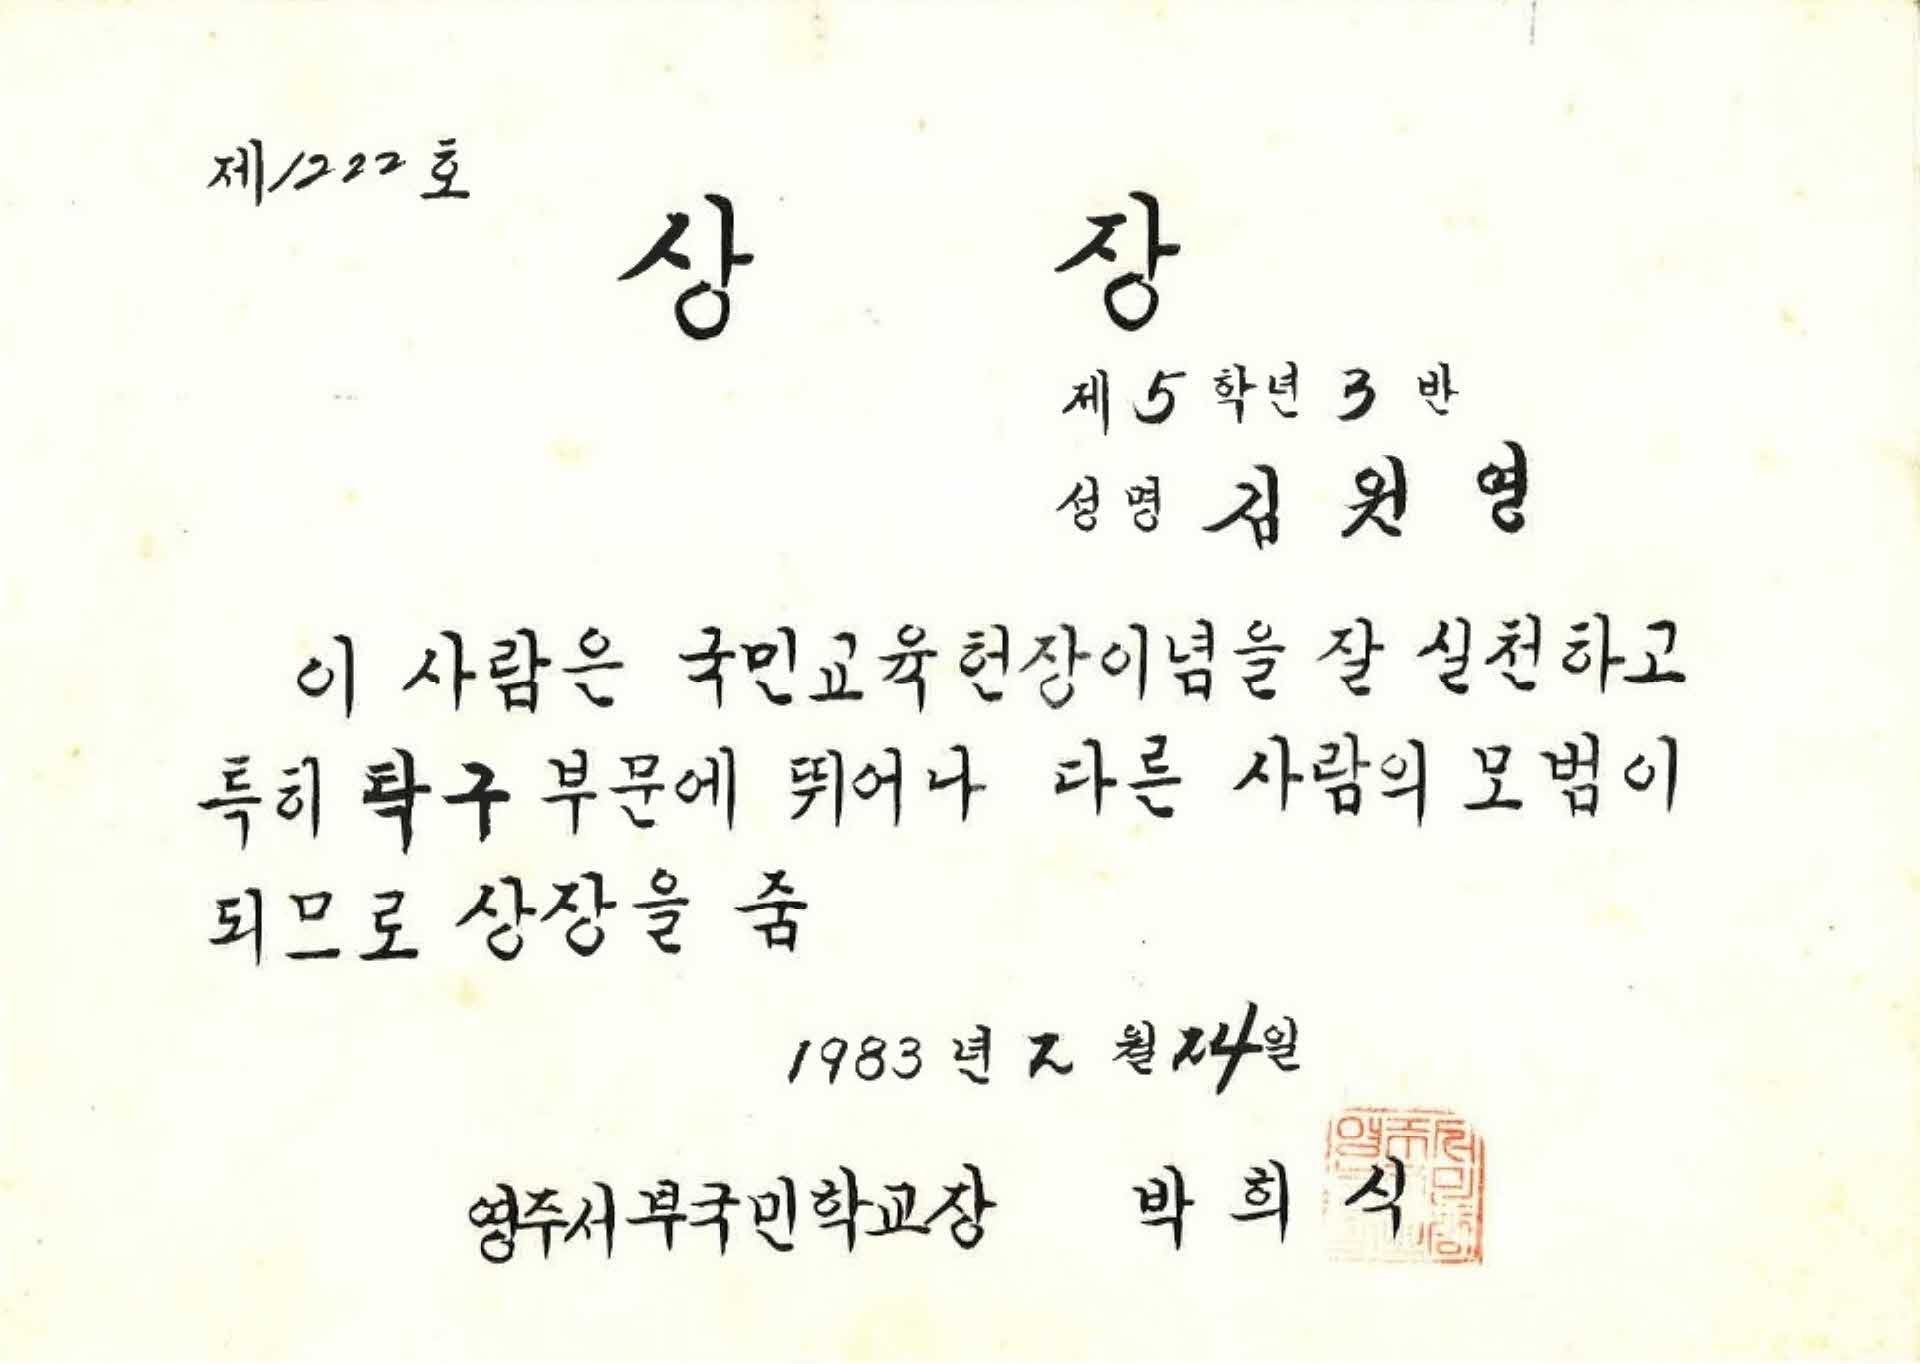 제1222호
상 장
제 5 학년 3 반
성명 김 원 영
이 사람은 국민교육헌장이념을 잘 실천하고
특히 탁구 부문에 뛰어나 다른 사람의 모범이
되므로 상장을 줌
1983 년 2 월 24일
영주서부국민학교장 박 희 식